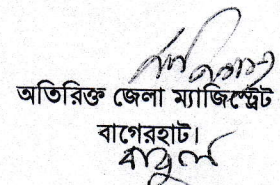 অতিরিক্ত জেলা ম্যাজিস্ট্রেট
বাগেরহাট।
বাবুল